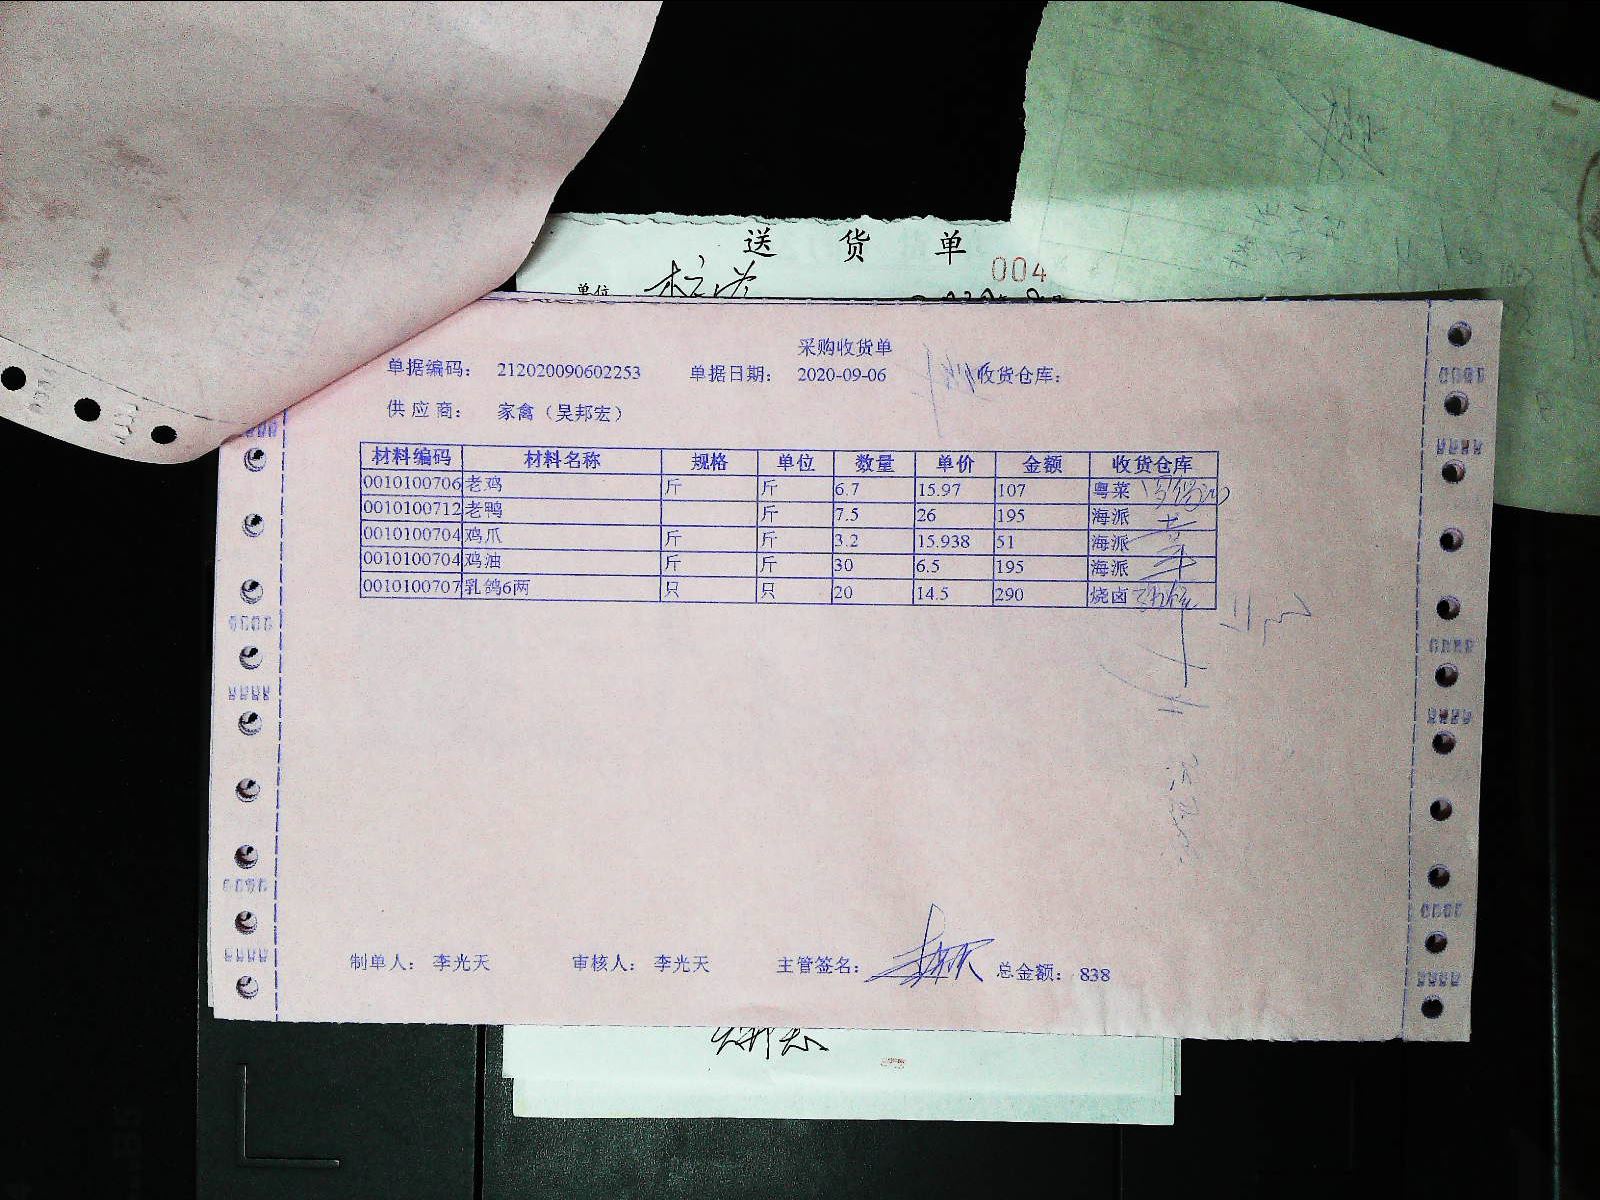 送 货 单
004
单位
采购收货单
单据编码： 212020090602253 单据日期： 2020-09-06 收货仓库：
供应商： 家禽（吴邦宏）
材料编码 材料名称 规格 单位 数量 单价 金额 收货仓库
0010100706 老鸡 斤 斤 6.7 15.97 107 粤菜
0010100712 老鸭 斤 7.5 26 195 海派
0010100704 鸡爪 斤 斤 3.2 15.938 51 海派
0010100704 鸡油 斤 斤 30 6.5 195 海派
0010100707 乳鸽6两 只 只 20 14.5 290 烧卤
制单人： 李光天 审核人： 李光天 主管签名： 总金额： 838